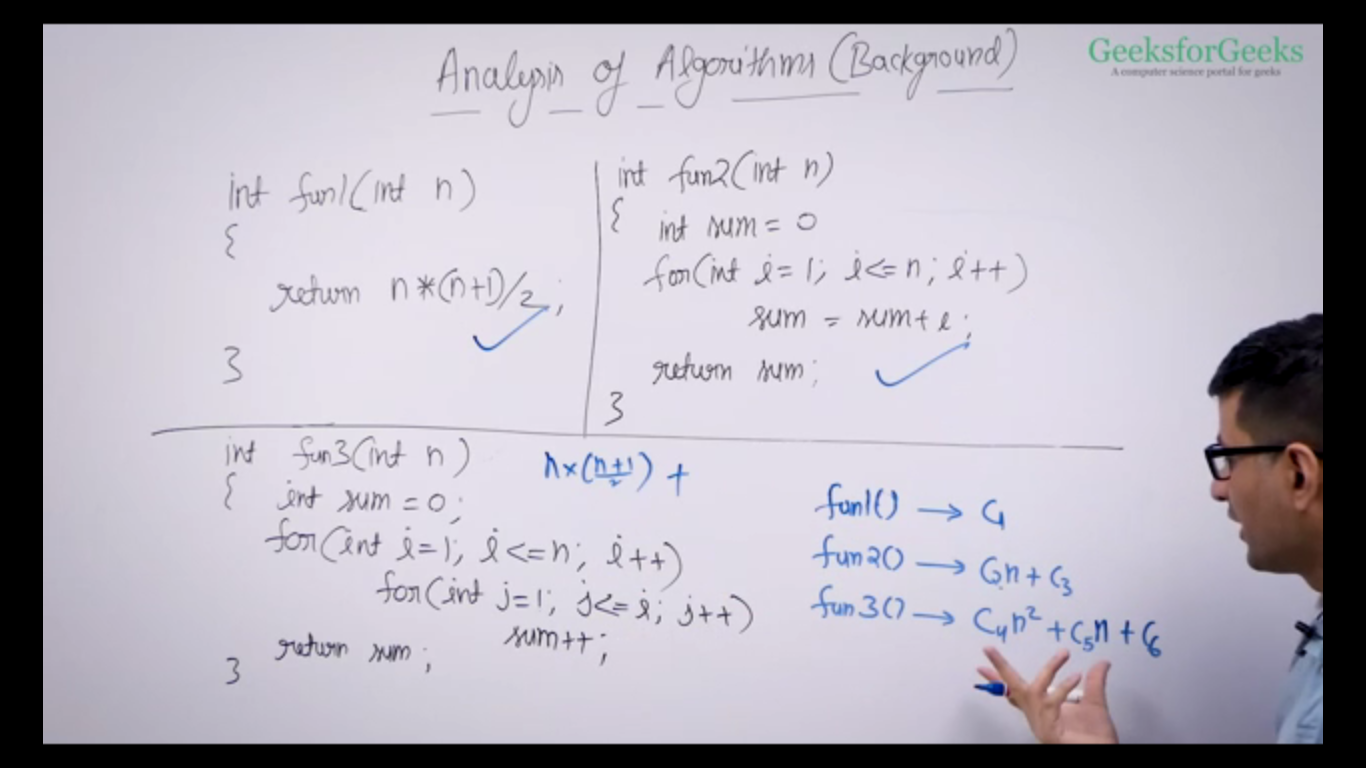 Analysis of Algorithms (Background)
GeeksforGeeks
A computer science portal for geeks
int fun1(int n)
{
return n*(n+1)/2;
}
int fun2(int n)
{ int sum = 0
for(int i=1; i<=n; i++)
sum = sum+i;
return sum;
}
int fun3(int n)
{ int sum = 0;
for(int i=1; i<=n; i++)
for(int j=1; j<=i; j++)
sum++;
return sum;
}
n×(n+1/2) +
fun1() → C1
fun2() → C2n + C3
fun3() → C4n² + C5n + C6